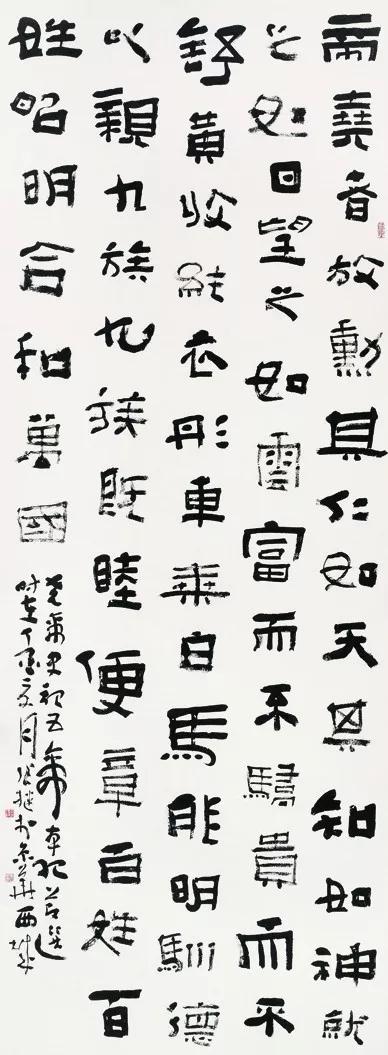 帝堯者放勳其仁如天其知如神就
之如日望之如雲富而不驕貴而不
舒黃收純衣彤車乘白馬能明馴德
以親九族九族既睦便章百姓百
姓昭明合和萬國
史記五帝本紀節選
时在丁酉月張継於京華西城